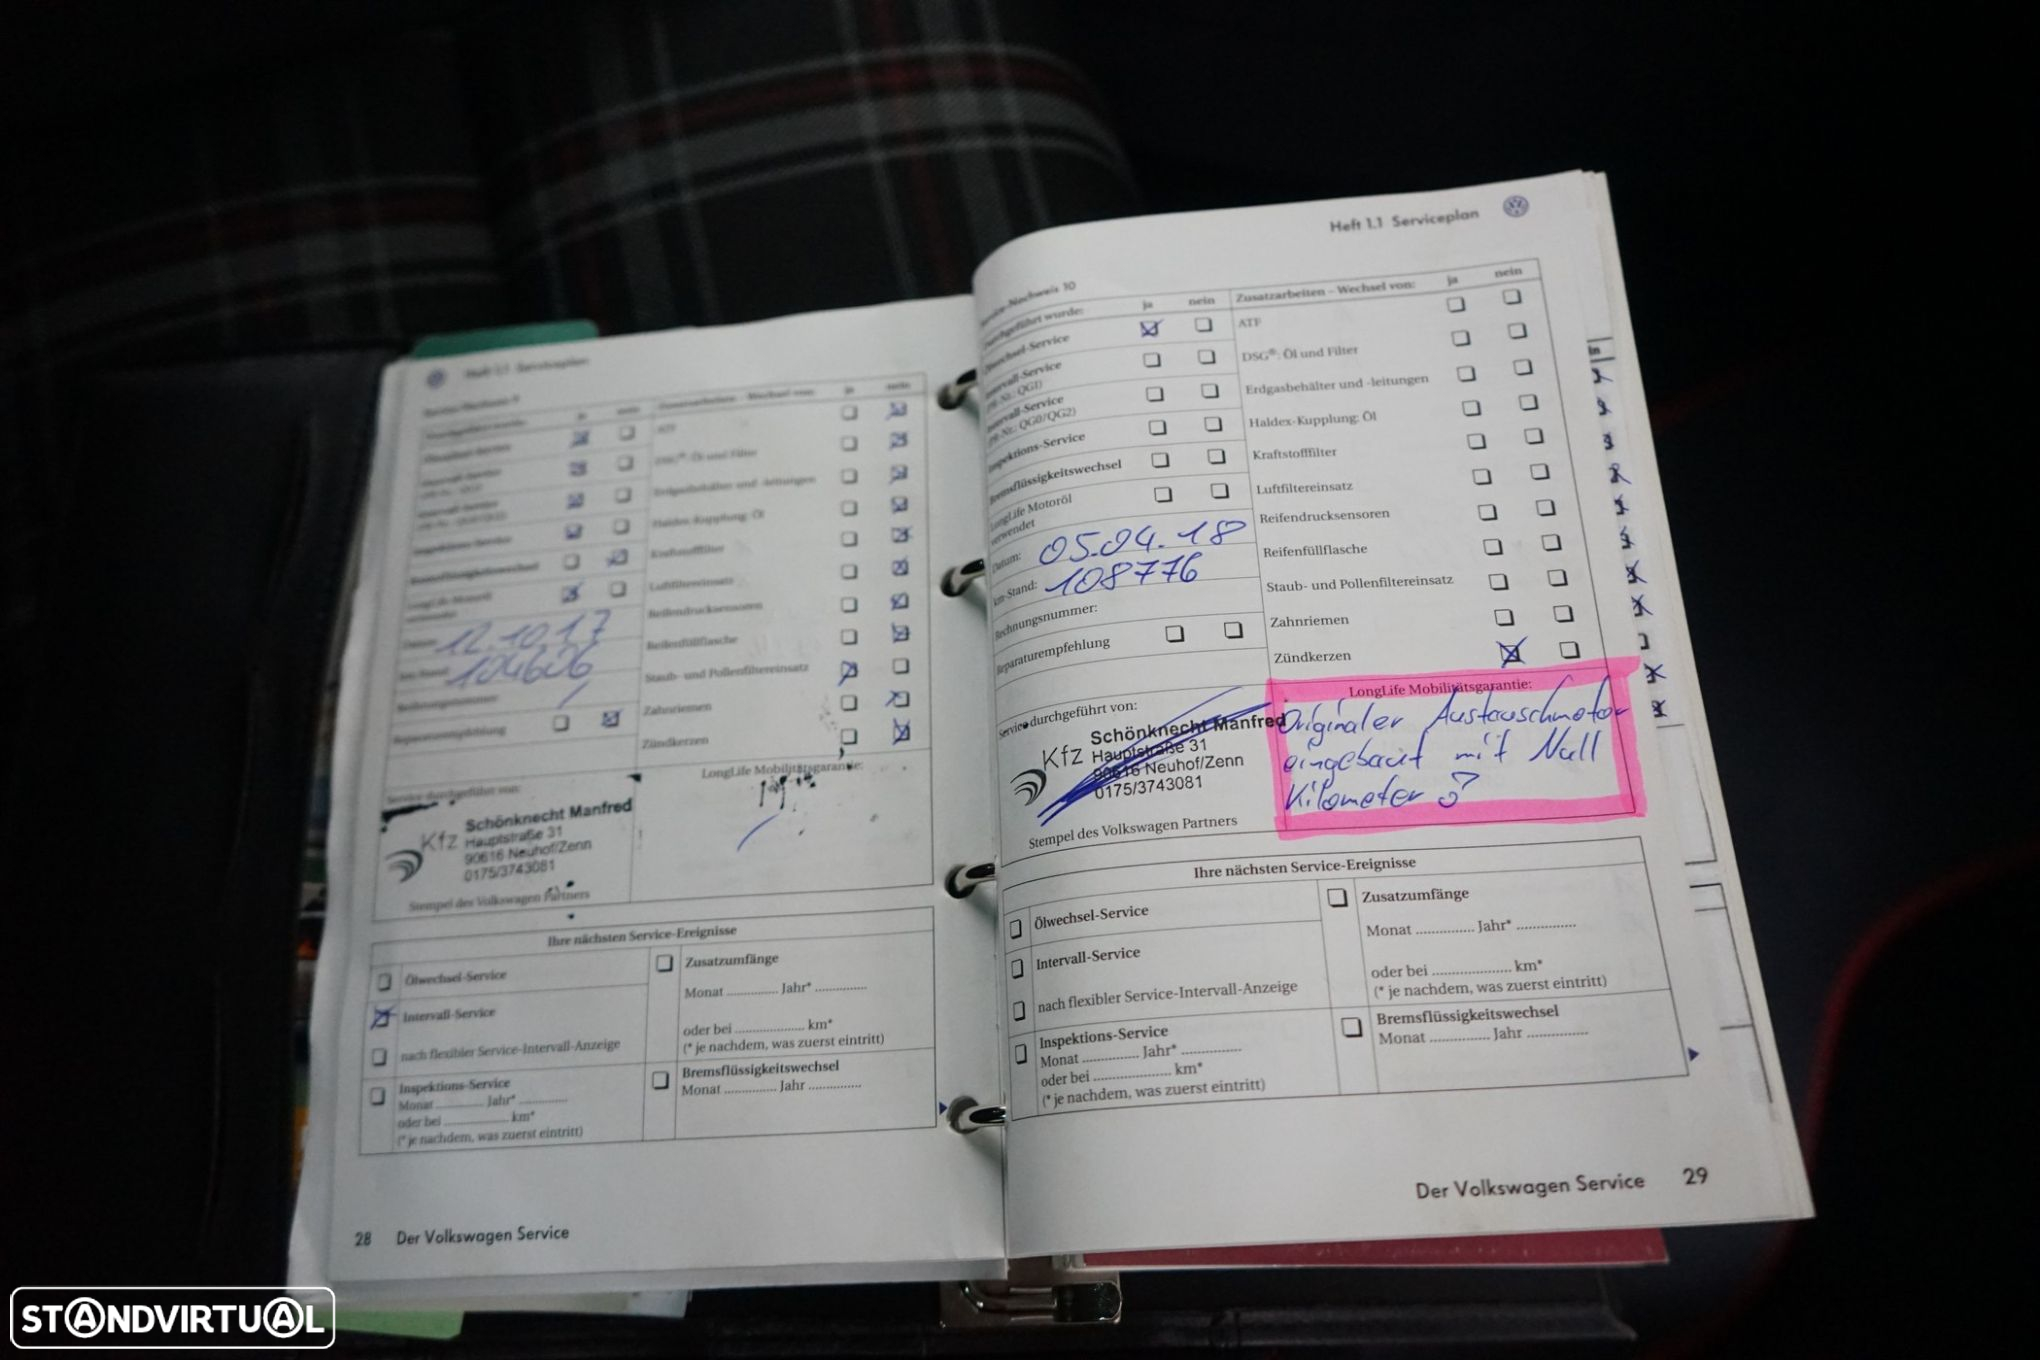 Heft 1.1 Serviceplan
ja nein
Zusatzarbeiten – Wechsel von: ja nein
DSG®: Öl und Filter
Erdgasbehälter und -leitungen
Haldex-Kupplung: Öl
Kraftstofffilter
Luftfiltereinsatz
Reifendrucksensoren
Reifenfüllflasche
Staub- und Pollenfiltereinsatz
Zahnriemen
Zündkerzen
LongLife Motoröl
12.10.17
104606
Reparaturempfehlung
Service durchgeführt von:
LongLife Mobilitätsgarantie:
Kfz Schönknecht Manfred
Hauptstraße 31
90616 Neuhof/Zenn
0175/3743081
Stempel des Volkswagen Partners
Ihre nächsten Service-Ereignisse
Ölwechsel-Service
Intervall-Service
nach flexibler Service-Intervall-Anzeige
Inspektions-Service
Monat .............. Jahr* ..............
oder bei .................... km*
(* je nachdem, was zuerst eintritt)
Zusatzumfänge
Monat .............. Jahr* ..............
oder bei .................... km*
(* je nachdem, was zuerst eintritt)
Bremsflüssigkeitswechsel
Monat .............. Jahr ..............
28 Der Volkswagen Service
Heft 1.1 Serviceplan
Service-Nachweis 10
Durchgeführt wurde: ja nein
Ölwechsel-Service
Intervall-Service
(PR-Nr.: QG1)
Intervall-Service
(PR-Nr.: QG0/QG2)
Inspektions-Service
Bremsflüssigkeitswechsel
LongLife Motoröl
verwendet
Datum: 05.04.18
km-Stand: 108776
Rechnungsnummer:
Reparaturempfehlung
Zusatzarbeiten – Wechsel von: ja nein
ATF
DSG®: Öl und Filter
Erdgasbehälter und -leitungen
Haldex-Kupplung: Öl
Kraftstofffilter
Luftfiltereinsatz
Reifendrucksensoren
Reifenfüllflasche
Staub- und Pollenfiltereinsatz
Zahnriemen
Zündkerzen
Service durchgeführt von:
Kfz Schönknecht Manfred
Hauptstraße 31
90616 Neuhof/Zenn
0175/3743081
Stempel des Volkswagen Partners
LongLife Mobilitätsgarantie:
Originaler Austauschmotor
eingebaut mit Null
Kilometer
Ihre nächsten Service-Ereignisse
Ölwechsel-Service
Intervall-Service
nach flexibler Service-Intervall-Anzeige
Inspektions-Service
Monat .............. Jahr* ..............
oder bei .................... km*
(* je nachdem, was zuerst eintritt)
Zusatzumfänge
Monat .............. Jahr* ..............
oder bei .................... km*
(* je nachdem, was zuerst eintritt)
Bremsflüssigkeitswechsel
Monat .............. Jahr ..............
Der Volkswagen Service 29
STANDVIRTUAL